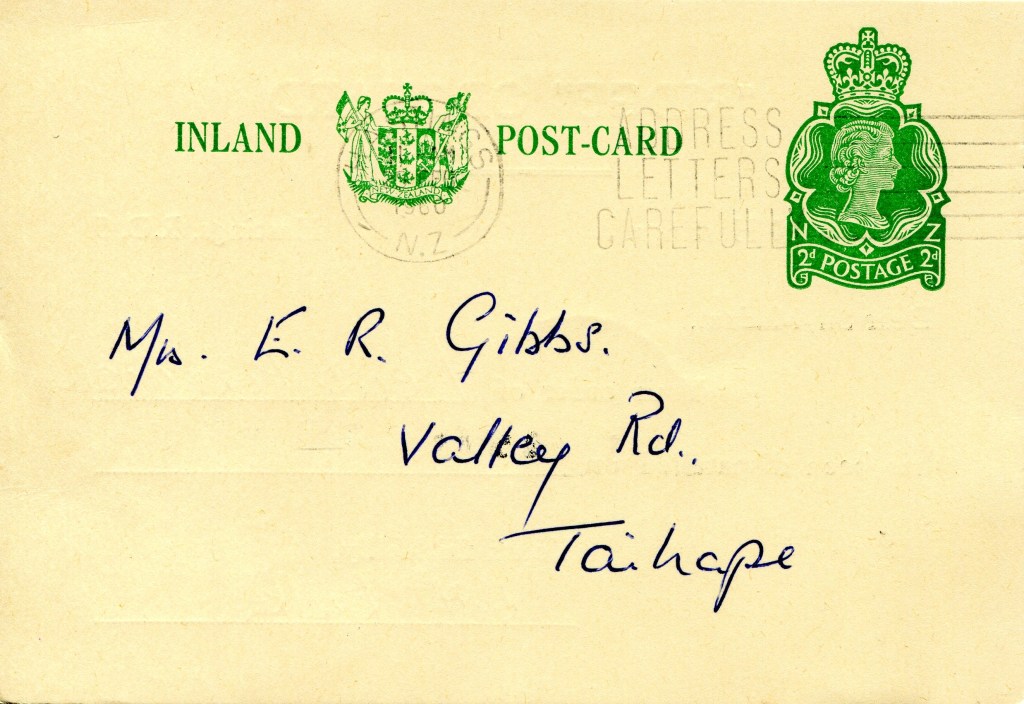 INLAND POST-CARD
NEW ZEALAND
N.Z
ADDRESS
LETTERS
CAREFULL
N Z
2d POSTAGE 2d
Mrs. E. R. Gibbs.
Valley Rd.,
Taihape